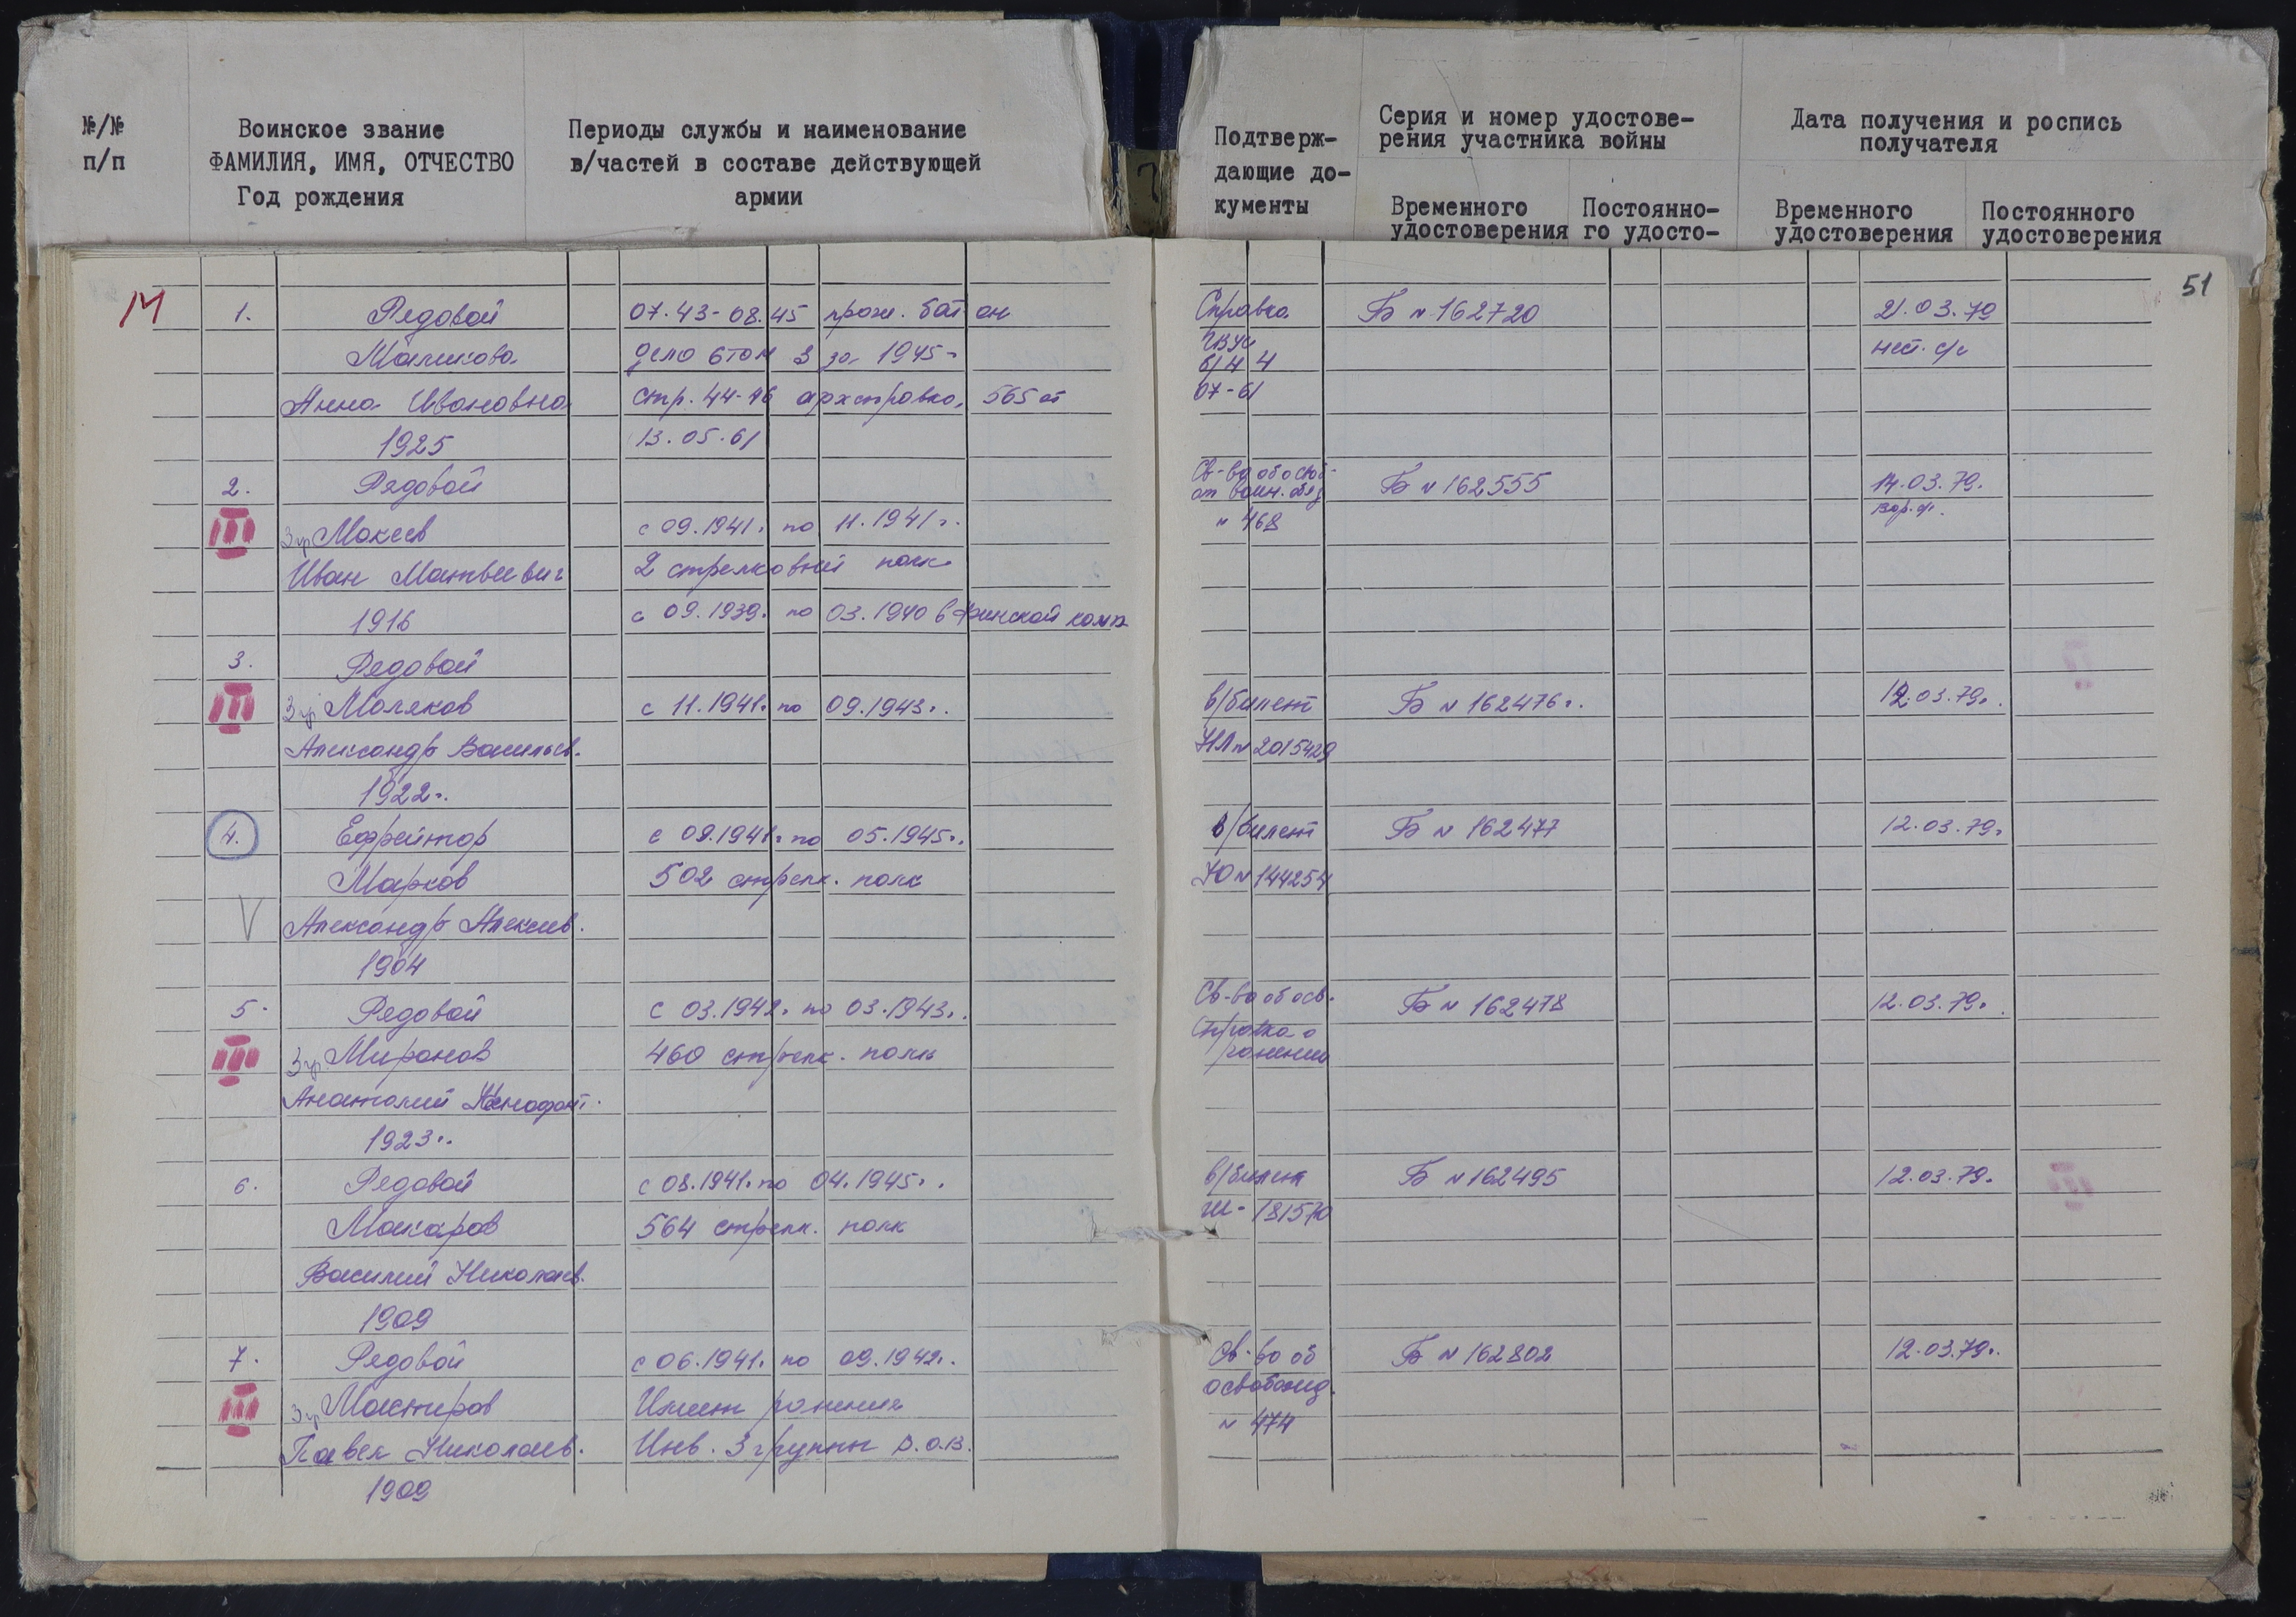 №/№
п/п
Воинское звание
ФАМИЛИЯ, ИМЯ, ОТЧЕСТВО
Год рождения
Периоды службы и наименование
в/частей в составе действующей
армии
Подтверж-
дающие до-
кументы
Серия и номер удостове-
рения участника войны
Временного
удостоверения
Постоянно-
го удосто-
Дата получения и роспись
получателя
Временного
удостоверения
Постоянного
удостоверения
М
51
1. Рядовой 07.43-08.45 прож. бат он Справка Б № 162720 21.03.79
Маликова дело 6 том 3 за 1945
Анна Ивановна стр. 44-46 архсправка 565 от 07-61
1925 13.05.61
2. Рядовой Св-во об освоб- Б № 162555 14.03.79.
от воин. обяз
III 3 гр Мокеев с 09.1941г. по 11.1941г. № 468
Иван Матвеевич 2 стрелковый полк
1916 с 09.1939. по 03.1940 в финской комп
3. Рядовой
III 3 гр Моляков с 11.1941г. по 09.1943г. в/билет Б № 162476г. 12.03.79г.
Александр Васильев. НЛ № 2015429
1922г.
4. Ефрейтор с 09.1941г. по 05.1945г. в/билет Б № 162477 12.03.79г
Марков 502 стрелк. полк НО № 144254
V Александр Алексеев.
1904
5. Рядовой с 03.1942г. по 03.1943г. Св-во об осв. Б № 162478 12.03.79г.
III 3 гр. Миронов 460 стрелк. полк Справка о
ранении
Анатолий Ксенофонт.
1923г.
6. Рядовой с 08.1941г. по 04.1945г. в/билет Б № 162495 12.03.79г.
Макаров 564 стрелк. полк
Василий Николаев.
1909
7. Рядовой с 06.1941г. по 09.1942г. Св-во об Б № 162802 12.03.79г.
освобожд.
III 3 гр Мастиров Имеет ранения № 474
Павел Николаев. Инв. 3 группы В.О.В.
1909